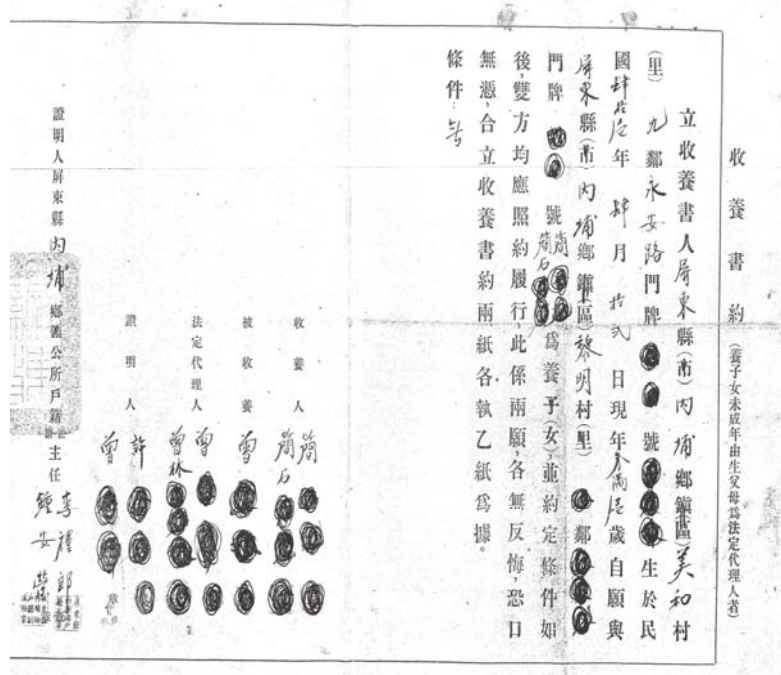 收養書約(養子女未成年由生父母爲法定代理人者)
立收養書人屏東縣(市)內埔鄉鎮區美和村
(里)九鄰永安路門牌號生於民
國肆拾伍年肆月拾弍日現年歲自願與
屏東縣(市)內埔鄉鎮區黎明村(里)鄰
門牌號簡簡石爲養子(女),並約定條件如
後,雙方均應照約履行,此係兩願,各無反悔,恐口
無憑,合立收養書約兩紙各執乙紙爲據。
條件:
收養人簡簡石
被收養曾
法定代理人曾曾林
證明人許曾章
證明人屏東縣內埔鄉鎮公所戶籍主任